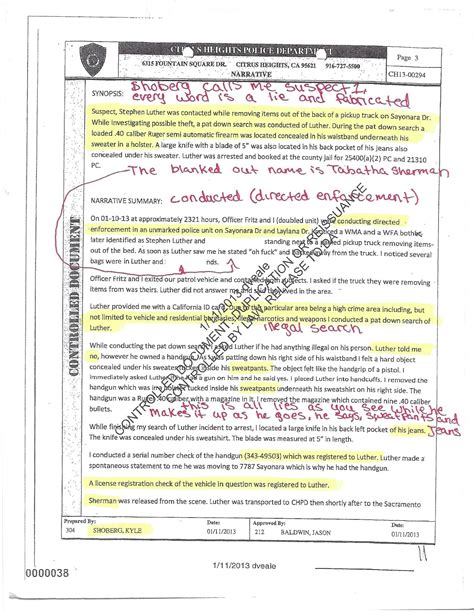 CITRUS HEIGHTS POLICE DEPARTMENT
6315 FOUNTAIN SQUARE DR. CITRUS HEIGHTS, CA 95621 916-727-5500
NARRATIVE
Page 3
CH13-00294
Shoberg calls me suspect 1,
SYNOPSIS: every word is a lie and fabricated
Suspect, Stephen Luther was contacted while removing items out of the back of a pickup truck on Sayonara Dr.
While investigating possible theft, a pat down search was conducted of Luther. During the pat down search a
loaded .40 caliber Ruger semi automatic firearm was located concealed in his waistband underneath his
sweater in a holster. A large knife with a blade of 5" was also located in his back pocket of his jeans also
concealed under his sweater. Luther was arrested and booked at the county jail for 25400(a)(2) PC and 21310
PC.
The blanked out name is Tabatha Sherman
NARRATIVE SUMMARY: conducted (directed enforcement)
On 01-10-13 at approximately 2321 hours, Officer Fritz and I (doubled unit) conducting directed
enforcement in an unmarked police unit on Sayonara Dr and Laylana Dr. noticed a WMA and a WFA both
later identified as Stephen Luther and standing next to a parked pickup truck removing items
out of the bed. As soon as Luther saw me he stated "oh fuck" and away from the truck. I noticed several
bags were in Luther and nds.
Officer Fritz and I exited our patrol vehicle and subjects. I asked if the truck they were removing
items from was theirs. Luther did not answer lived in the area.
Luther provided me with a California ID card. Due to this particular area being a high crime area including, but
not limited to vehicle and residential burglaries, illegal narcotics and weapons I conducted a pat down search of
Luther.
illegal search
While conducting the pat down search I asked Luther if he had anything illegal on his person. Luther told me
no, however he owned a handgun. As I was patting down his right side of his waistband I felt a hard object
concealed under his sweater tucked inside his sweatpants. The object felt like the handgrip of a pistol. I
immediately asked Luther if he had a gun on him and he said yes. I placed Luther into handcuffs. I removed the
handgun which was in a holster tucked inside his sweatpants underneath his sweatshirt on his right side. The
handgun was a Ruger .40 Caliber with a magazine in it. I removed the magazine which contained nine .40 caliber
bullets.
this is all lies as you see while he
makes it up as he goes, he says, sweatpants and
jeans
While finishing my search of Luther incident to arrest, I located a large knife in his back left pocket of his jeans.
The knife was concealed under his sweatshirt. The blade was measured at 5" in length.
I conducted a serial number check of the handgun (343-49503) which was registered to Luther. Luther made a
spontaneous statement to me he was moving to 7787 Sayonara which is why he had the handgun.
A license registration check of the vehicle in question was registered to Luther.
Sherman was released from the scene. Luther was transported to CHPD then shortly after to the Sacramento
Prepared By:
304 SHOBERG, KYLE
Date:
01/11/2013
Approved By:
212 BALDWIN, JASON
Date:
01/11/2013
CONTROLLED DOCUMENT
1/11/2013 dveale
CONTROLLED DOCUMENT, DUPLICATION OR ISSUANCE
11
0000038
1/11/2013 dveale